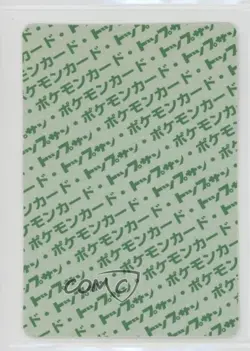 トップサン・ポケモンカード・
トップサン・ポケモンカード・トップサン
ポケモンカード・トップサン・ポケモンカード
トップサン・ポケモンカード・トップサン
ポケモンカード・トップサン・ポケモンカード
トップサン・ポケモンカード・トップサン
ポケモンカード・トップサン・ポケモンカード
トップサン・ポケモンカード・トップサン
ポケモンカード・トップサン
COMC